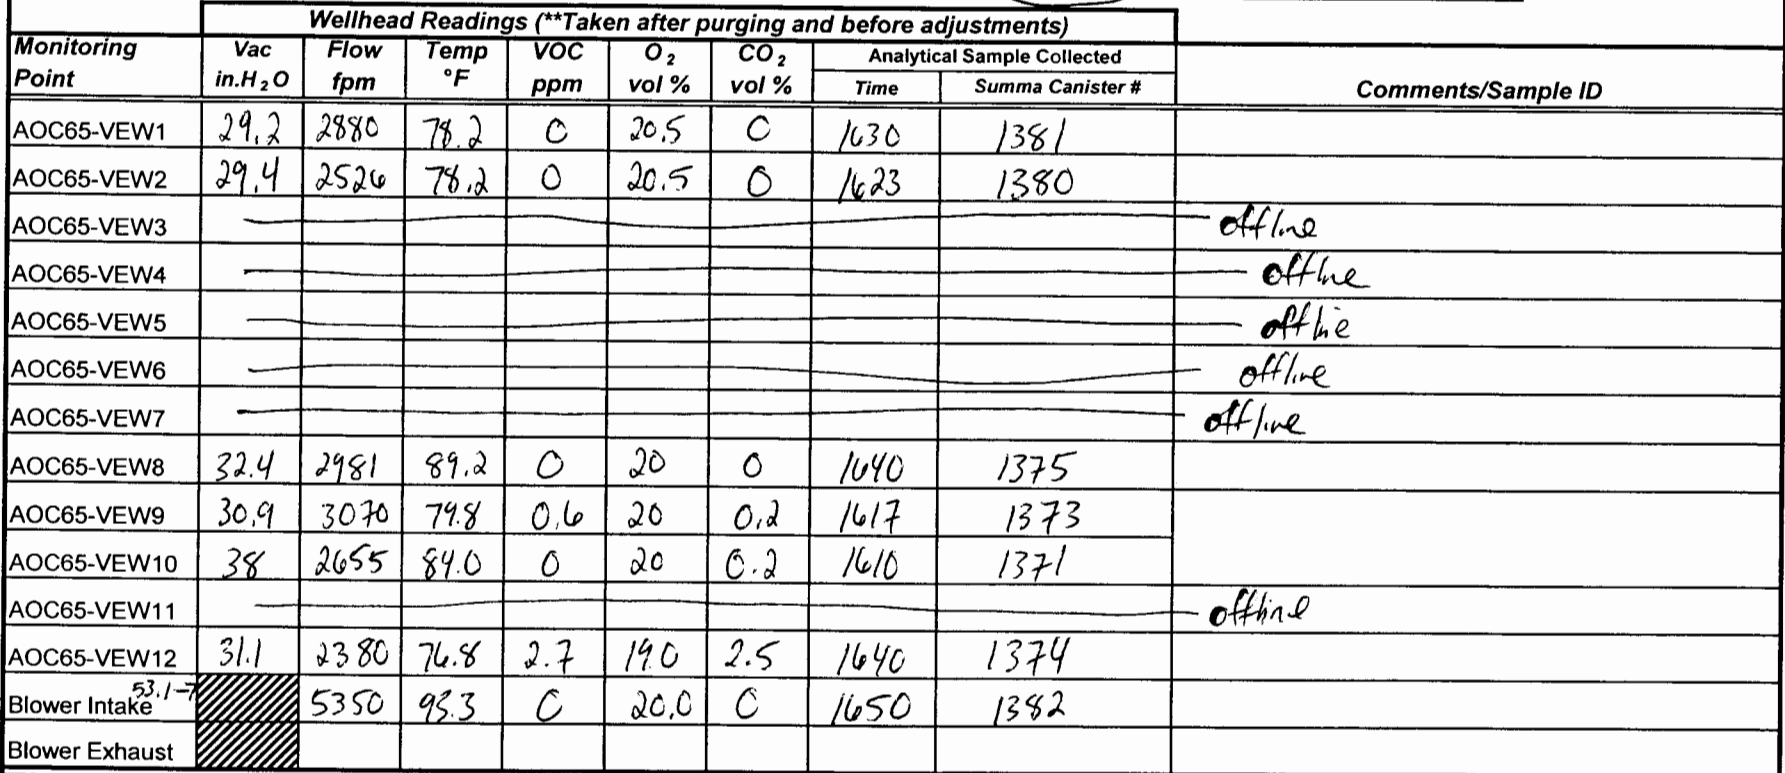 Wellhead Readings (**Taken after purging and before adjustments)
Monitoring Point Vac in.H₂O Flow fpm Temp °F VOC ppm O₂ vol % CO₂ vol % Analytical Sample Collected Time Summa Canister # Comments/Sample ID
AOC65-VEW1 29.2 2880 78.2 0 20.5 0 1630 1381
AOC65-VEW2 29.4 2526 78.2 0 20.5 0 1623 1380
AOC65-VEW3 offline
AOC65-VEW4 offline
AOC65-VEW5 offline
AOC65-VEW6 offline
AOC65-VEW7 offline
AOC65-VEW8 32.4 2981 89.2 0 20 0 1640 1375
AOC65-VEW9 30.9 3070 79.8 0.6 20 0.2 1617 1373
AOC65-VEW10 38 2655 84.0 0 20 0.2 1610 1371
AOC65-VEW11 offline
AOC65-VEW12 31.1 2380 76.8 2.7 19.0 2.5 1640 1374
Blower Intake 53.1-7 5350 93.3 0 20.0 0 1650 1382
Blower Exhaust